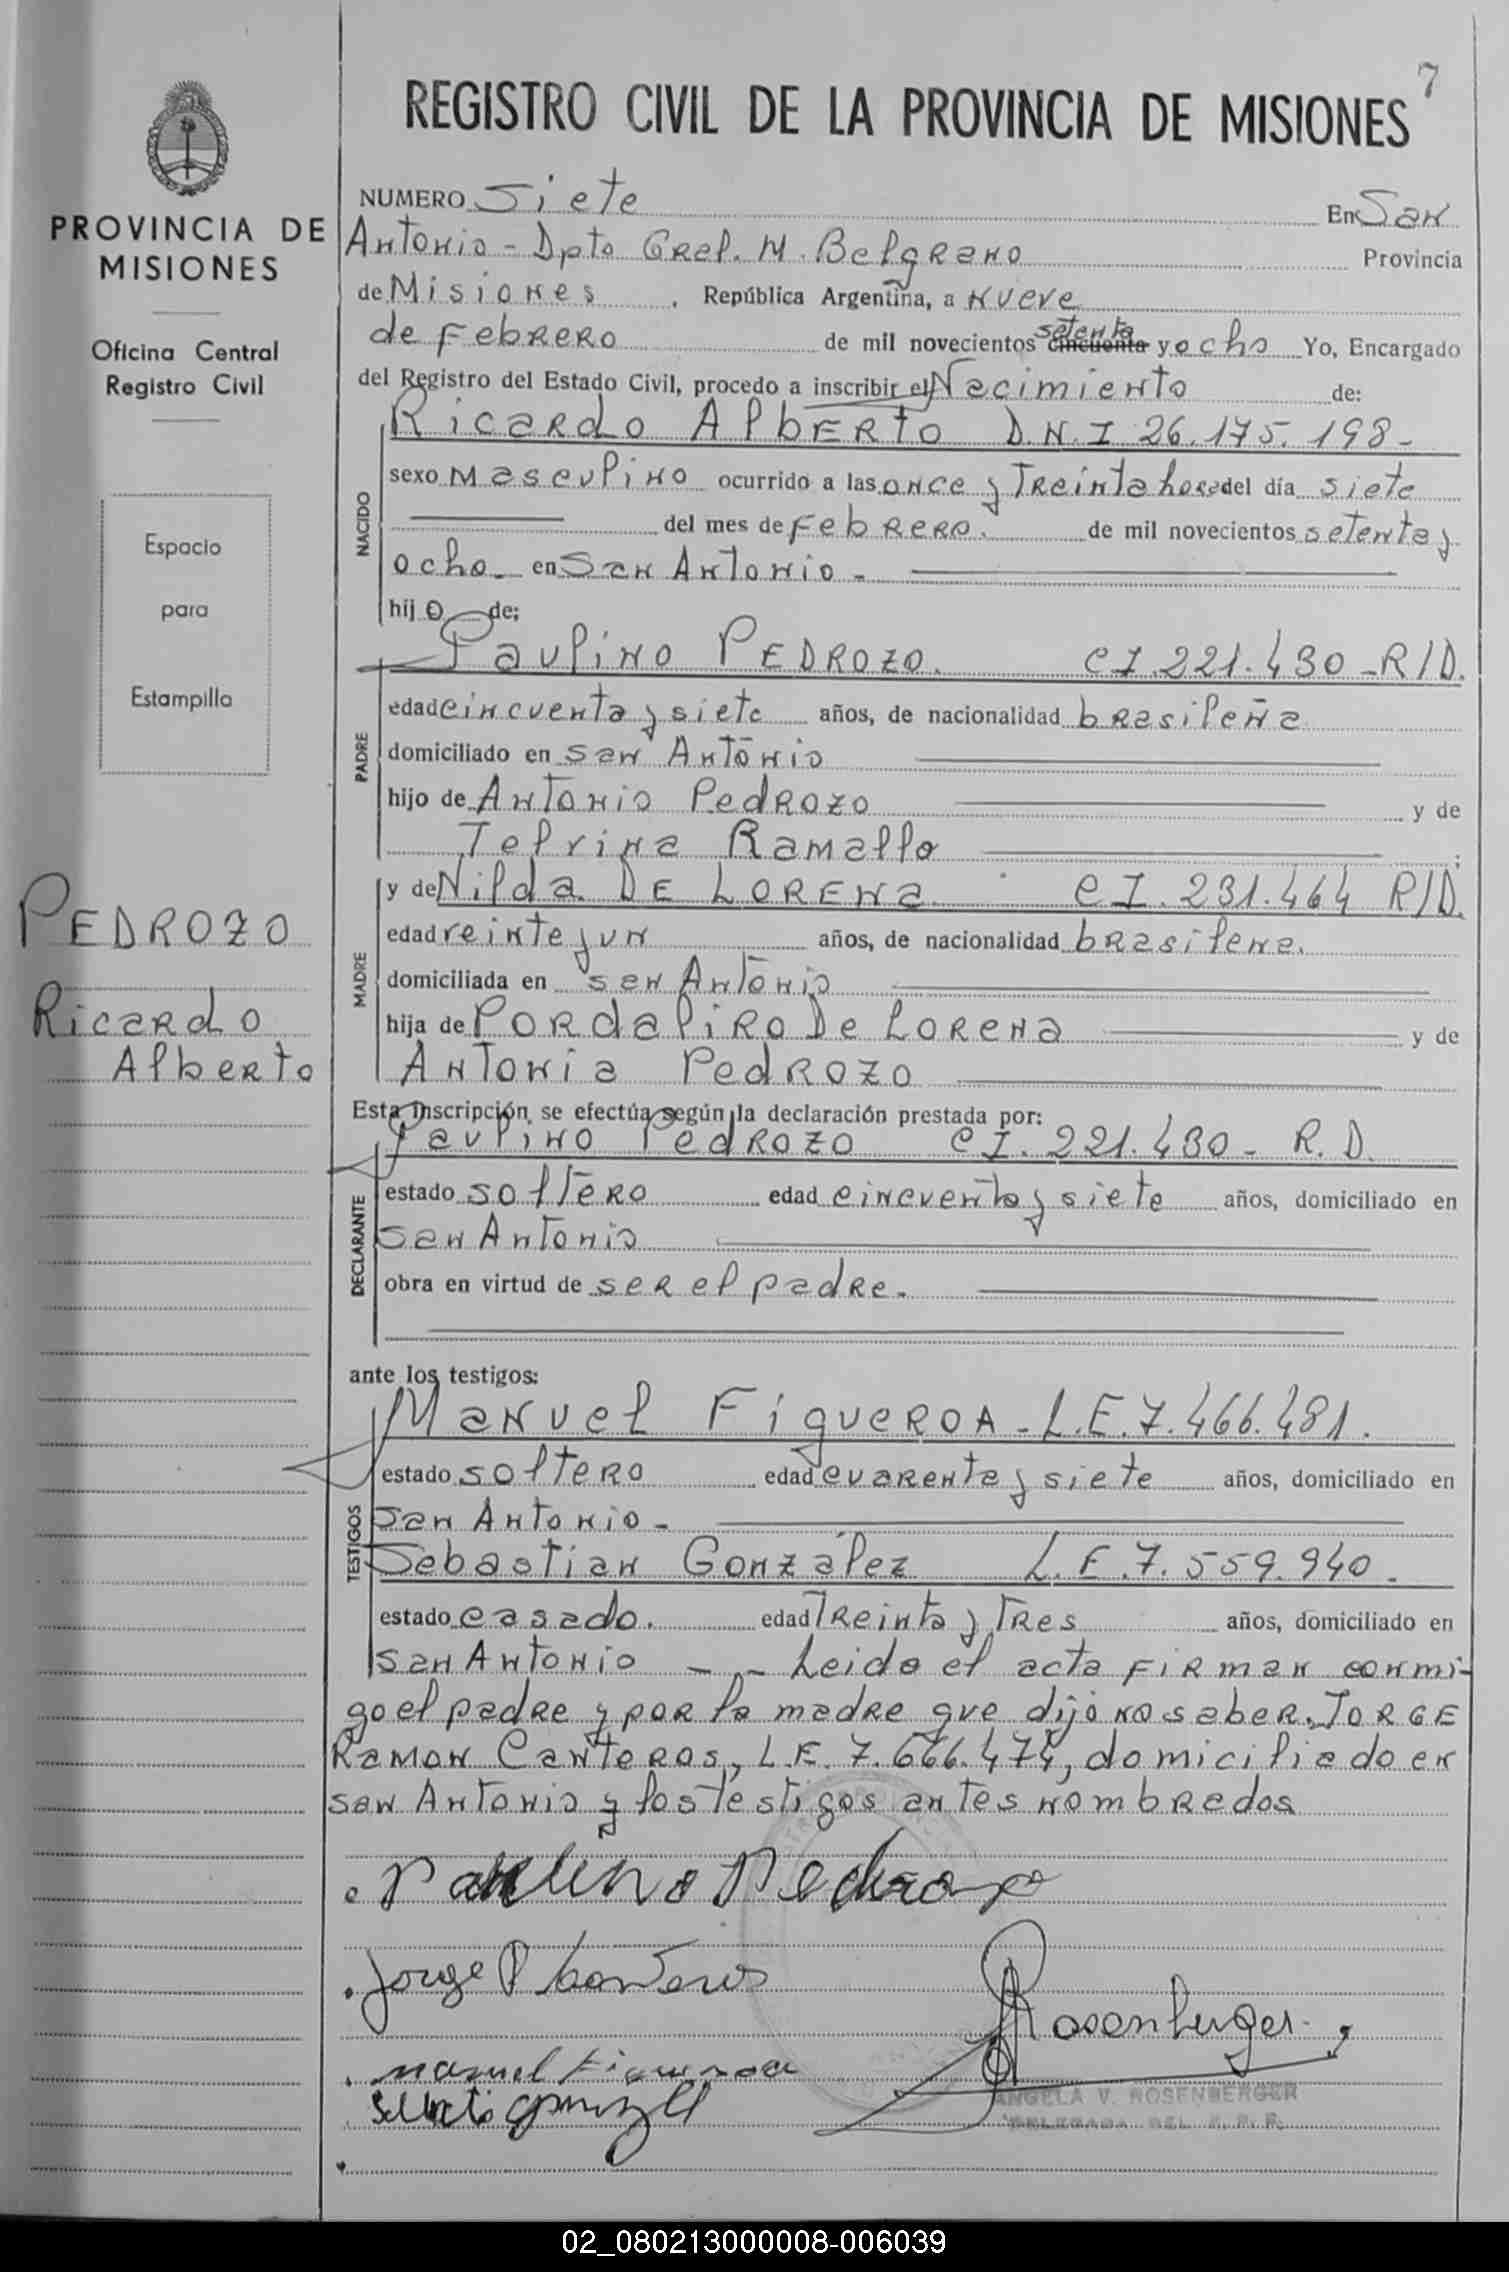 7
REGISTRO CIVIL DE LA PROVINCIA DE MISIONES
PROVINCIA DE
MISIONES
Oficina Central
Registro Civil
Espacio
para
Estampilla
PEDROZO
Ricardo
Alberto
NUMERO Siete En San
Antonio - Dpto Gral. M. Belgrano Provincia
de Misiones , República Argentina, a nueve
de Febrero de mil novecientos setenta cincuenta y ocho Yo, Encargado
del Registro del Estado Civil, procedo a inscribir el Nacimiento de:
Ricardo Alberto D.N.I. 26.175.198-
NACIDO
sexo masculino ocurrido a las once y Treinta horas del día siete
del mes de Febrero. de mil novecientos setenta y
ocho - en San Antonio -
hij o de:
Paulino PEDROZO. CI. 221.430 - R/D.
PADRE
edad cincuenta y siete años, de nacionalidad brasileña
domiciliado en san Antonio
hijo de Antonio Pedrozo y de
Telvina Ramallo ;
y de Nilda DE LORENA CI. 231.464 R/D.
MADRE
edad veinte y un años, de nacionalidad brasilena.
domiciliada en san Antonio
hija de PORDALIRO De LORENA y de
Antonia Pedrozo
Esta inscripción se efectúa según la declaración prestada por:
Paulino Pedrozo CI. 221.430 - R. D.
DECLARANTE
estado soltero edad cincuenta y siete años, domiciliado en
san Antonio
obra en virtud de ser el padre.
ante los testigos:
Manuel Figueroa - L.E. 7.466.481.
TESTIGOS
estado soltero edad cuarenta y siete años, domiciliado en
san Antonio -
Sebastian González L.E. 7.559.940.
estado casado. edad Treinta y Tres años, domiciliado en
san Antonio - - Leida el acta firman conmi-
go el padre y por la madre que dijo no saber, JORGE
Ramon Canteros, L.E. 7.666.474, domiciliado en
san Antonio y los testigos antes nombrados
Paulino Pedrozo
Jorge R Canteros
Rosenberger
manuel Figueroa
ANGELA V. ROSENBERGER
DELEGADA DEL R. P. P.
02_080213000008-006039